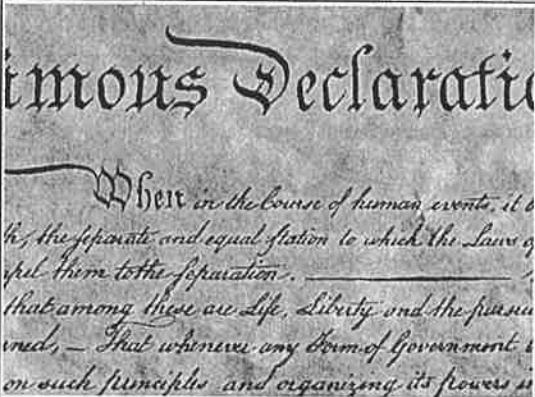 imous Declaratio
When in the Course of human events, it b
th, the separate and equal station to which the Laws o
npel them to the separation. ———
that among these are Life, Liberty and the pursu
rned, — That whenever any Form of Government b
on such principles and organizing its powers in